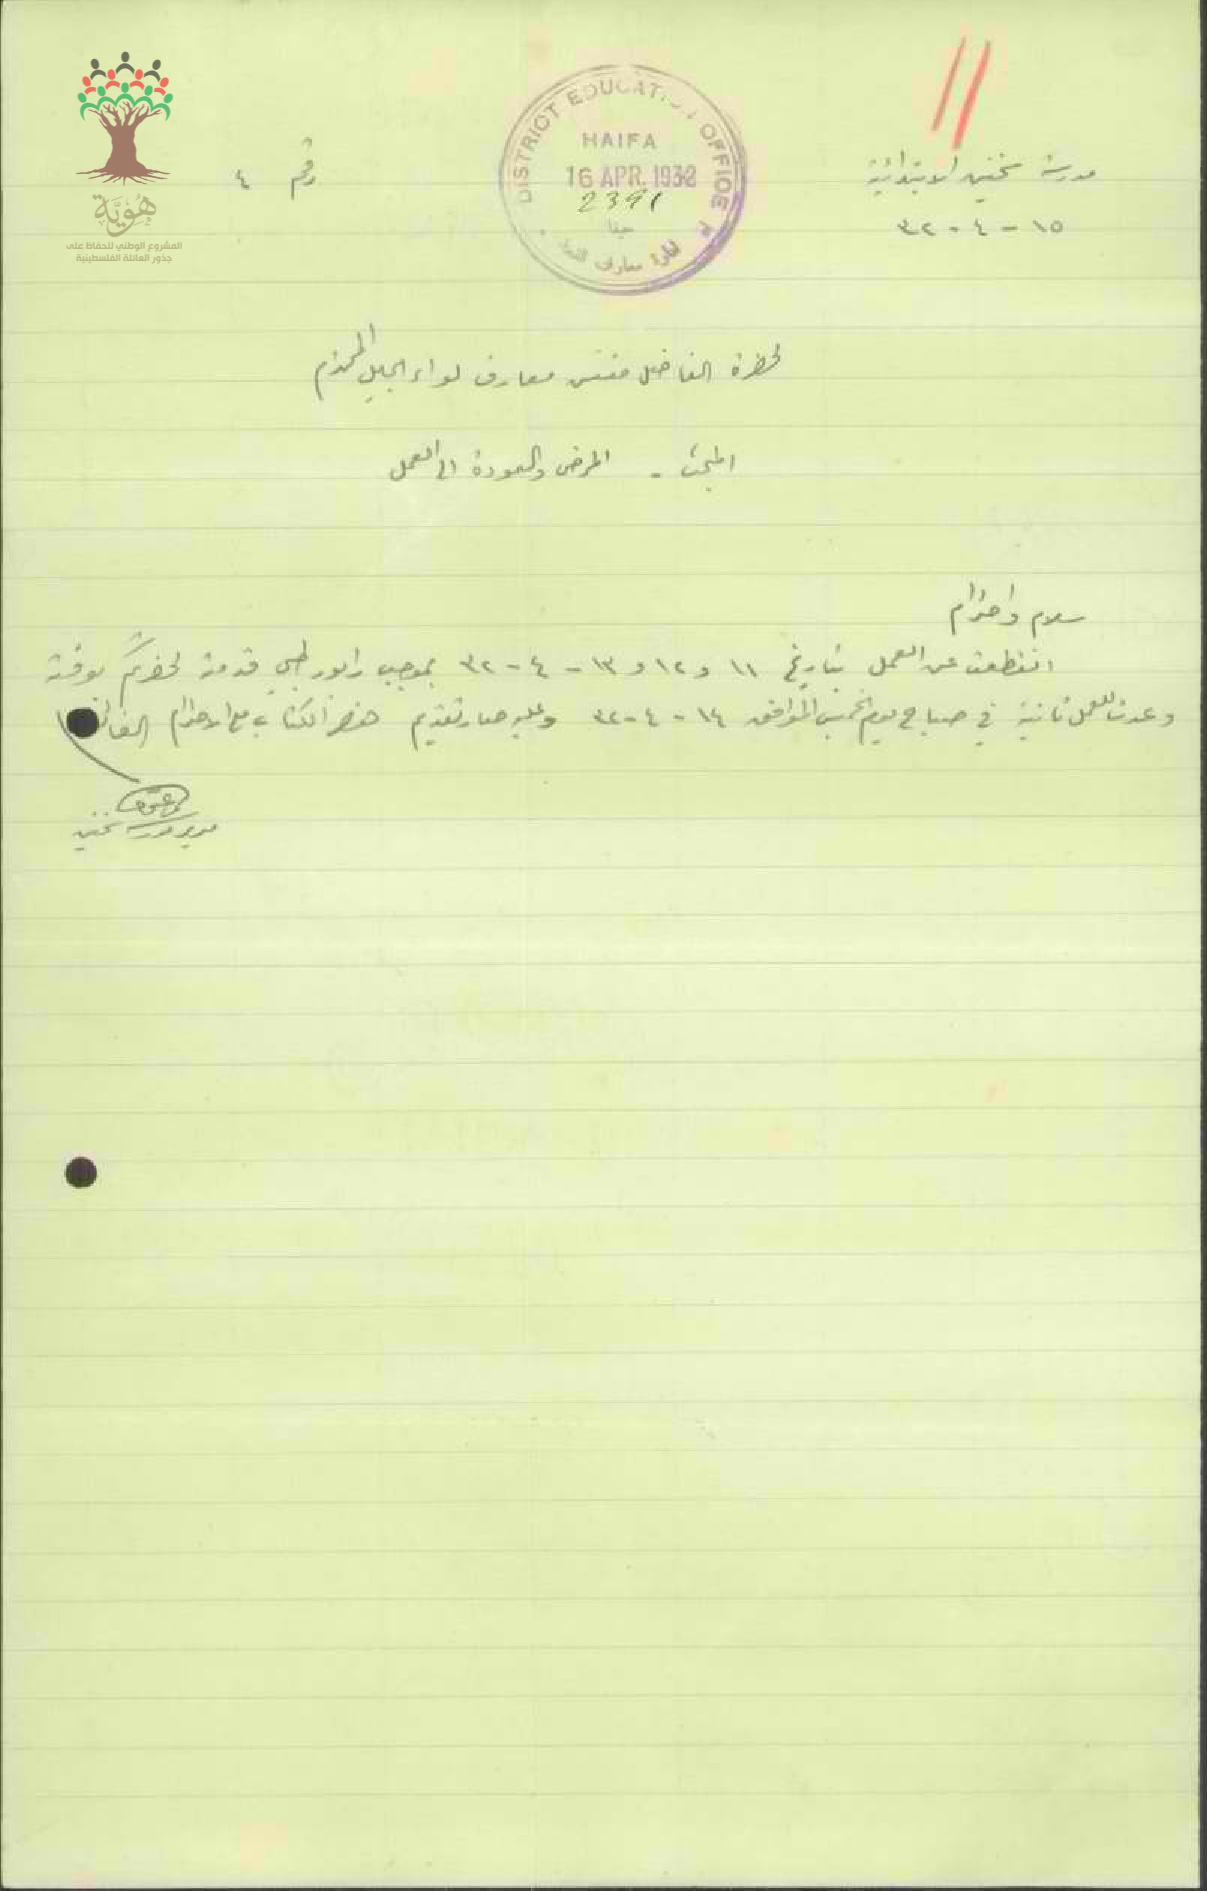 هُوِيَّة
المشروع الوطني للحفاظ على
جذور العائلة الفلسطينية
DISTRICT EDUCATION OFFICE
HAIFA
16 APR. 1932
2391
حيفا
ادارة معارف
مدرسة سخنين الابتدائية
١٥ - ٤ - ٣٢
رقم ٤
لحضرة الفاضل مفتش معارف لواء الجليل المحترم
المبحث - المرض والعودة الى العمل
سلام واحترام
انقطعت عن العمل بتاريخ ١١ و ١٢ و ١٣ - ٤ - ٣٢ بموجب رابور طبي قدمته لحضرتكم بوقته
وعدت للعمل ثانية في صباح يوم الخميس الموافق ١٤ - ٤ - ٣٢ وعليه صار تقديم هذا الكتاب مع الاحترام
مدير مدرسة سخنين